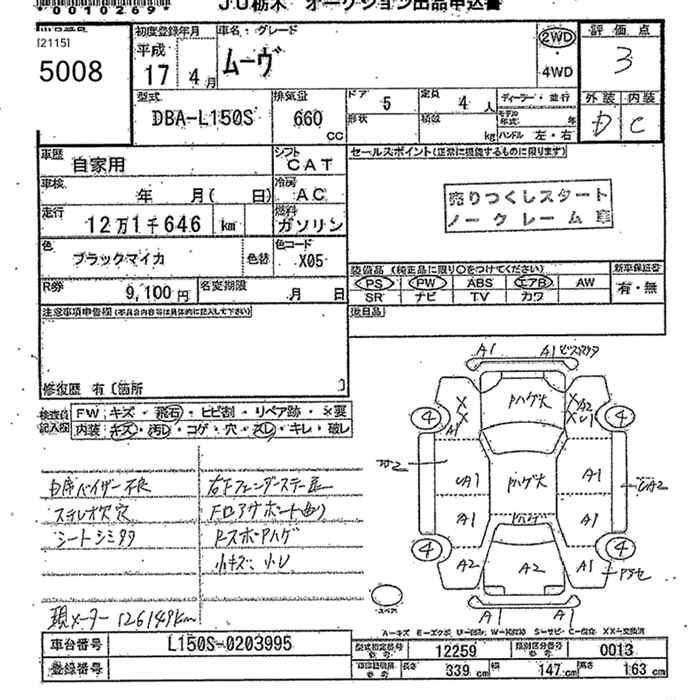 00102697
JU栃木 オークション出品申込書
[2115]
5008
初度登録年月
平成
17 4 月
車名・グレード
ムーヴ
2WD
4WD
評価点
3
外装 内装
D C
型式
DBA-L150S
排気量
660 CC
ドア 5
形状
定員 4 人
積数 kg
ディーラー・並行
モデル年式 年
ハンドル 左・右
車歴 自家用
シフト CAT
セールスポイント(正常に機能するものに限ります)
車検 年 月( 日)
冷房 AC
売りつくしスタート
ノークレーム車
走行 12万1千646 km
燃料 ガソリン
色 ブラックマイカ 色替
色コード X05
装備品(純正品に限り○をつけてください)
新車保証書
PS PW ABS エアB AW
SR ナビ TV カワ
有・無
R券 9,100円
名変期限 月 日
注意事項申告欄(不具合内容等は具体的に記入して下さい)
後日品
修復歴 有〔箇所 〕
検査員記入欄
FW キズ・飛石・ヒビ割・リペア跡・×要
内装 キズ・汚レ・コゲ・穴・スレ・キレ・破レ
内席バイザー不良
右Fフェンダーステー
ステレオ欠穴
シートシミタタ
RスポAハゲ
小キズ 小レ
現メーター 126149km
A1 A1
Pハゲ大
X X A1
X A2
X U1
4 4
UA1 Pハゲ大 A1
UA2
A1 Pハゲ A1
4 4
A2 A2 A1
A1 A1
スペア
A－キズ E－エクボ U－凹み W－補修跡 S－サビ C－腐食 XX－交換済
車台番号 L150S-0203995
登録番号
型式指定番号 参考 12259
類別区分番号 参考 0013
長さ 339 cm 幅 147 cm 高さ 163 cm